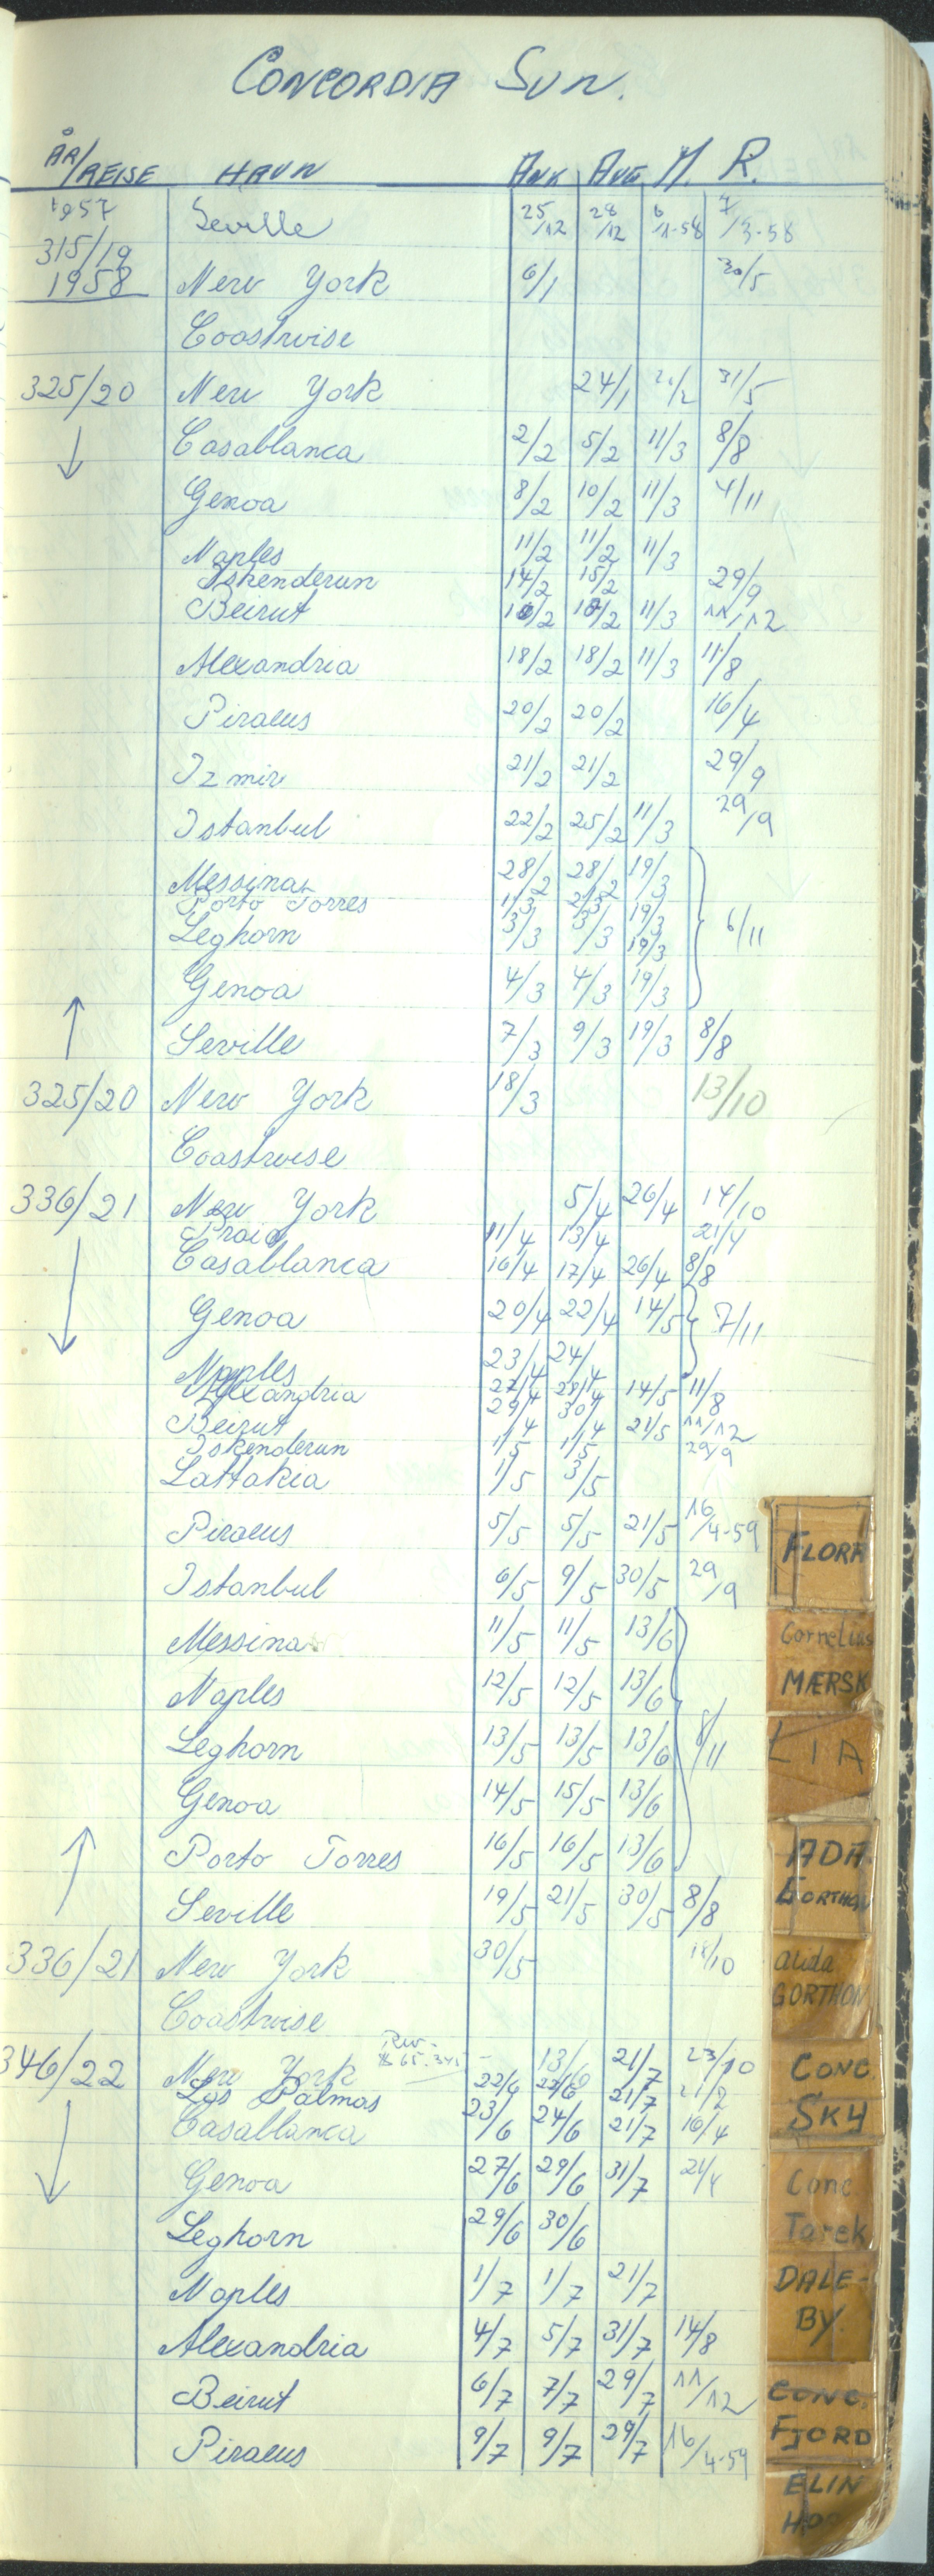 CONCORDIA SUN.
ÅR/REISE HAVN ANK AVG M. R.
1957 Seville 25/12 28/12 6/1-58 7/3-58
315/19
1958 New York 6/1 30/5
Coastwise
325/20 New York 24/1 31/5
↓ Casablanca 2/2 5/2 11/3 8/8
Genoa 8/2 10/2 11/3 4/11
Naples 11/2 11/2 11/3
Iskenderun 14/2 15/2 29/9
Beirut 16/2 16/2 11/3 11/12
Alexandria 18/2 18/2 11/3 11/8
Piraeus 20/2 20/2 16/4
Izmir 21/2 21/2 29/9
Istanbul 22/2 25/2 11/3 29/9
Messina 28/2 28/2 19/3
Porto Torres 1/3 2/3 19/3
Leghorn 3/3 3/3 19/3 6/11
Genoa 4/3 4/3 19/3
↑ Seville 7/3 9/3 19/3 8/8
325/20 New York 18/3 13/10
Coastwise
336/21 New York 5/4 26/4 14/10
Praia 11/4 13/4 21/4
↓ Casablanca 16/4 17/4 26/4 8/8
Genoa 20/4 22/4 14/5 7/11
Naples 23/4 24/4
Alexandria 27/4 28/4 14/5 11/8
Beirut 29/4 30/4 21/5 11/12
Iskenderun 1/5 1/5 29/9
Lattakia 1/5 3/5
Piraeus 5/5 5/5 21/5 16/4-59
Istanbul 6/5 9/5 30/5 29/9
Messina 11/5 11/5 13/6
Naples 12/5 12/5 13/6
Leghorn 13/5 13/5 13/6 8/11
Genoa 14/5 15/5 13/6
↑ Porto Torres 16/5 16/5 13/6
Seville 19/5 21/5 30/5 8/8
336/21 New York 30/5 18/10
Coastwise
346/22 New York 13/6 21/7 23/10
Las Palmas 22/6 22/6 21/7 21/2
↓ Casablanca 23/6 24/6 21/7 16/4
Genoa 27/6 29/6 31/7 21/4
Leghorn 29/6 30/6
Naples 1/7 1/7 21/7
Alexandria 4/7 5/7 31/7 14/8
Beirut 6/7 7/7 29/7 11/12
Piraeus 9/7 9/7 29/7 16/4-59
FLORA
Cornelius
MÆRSK
LIA
ADA
GORTHON
alida
GORTHON
CONC.
SKY
Conc
Tarek
DALE-
BY.
CONC.
FJORD
ELIN